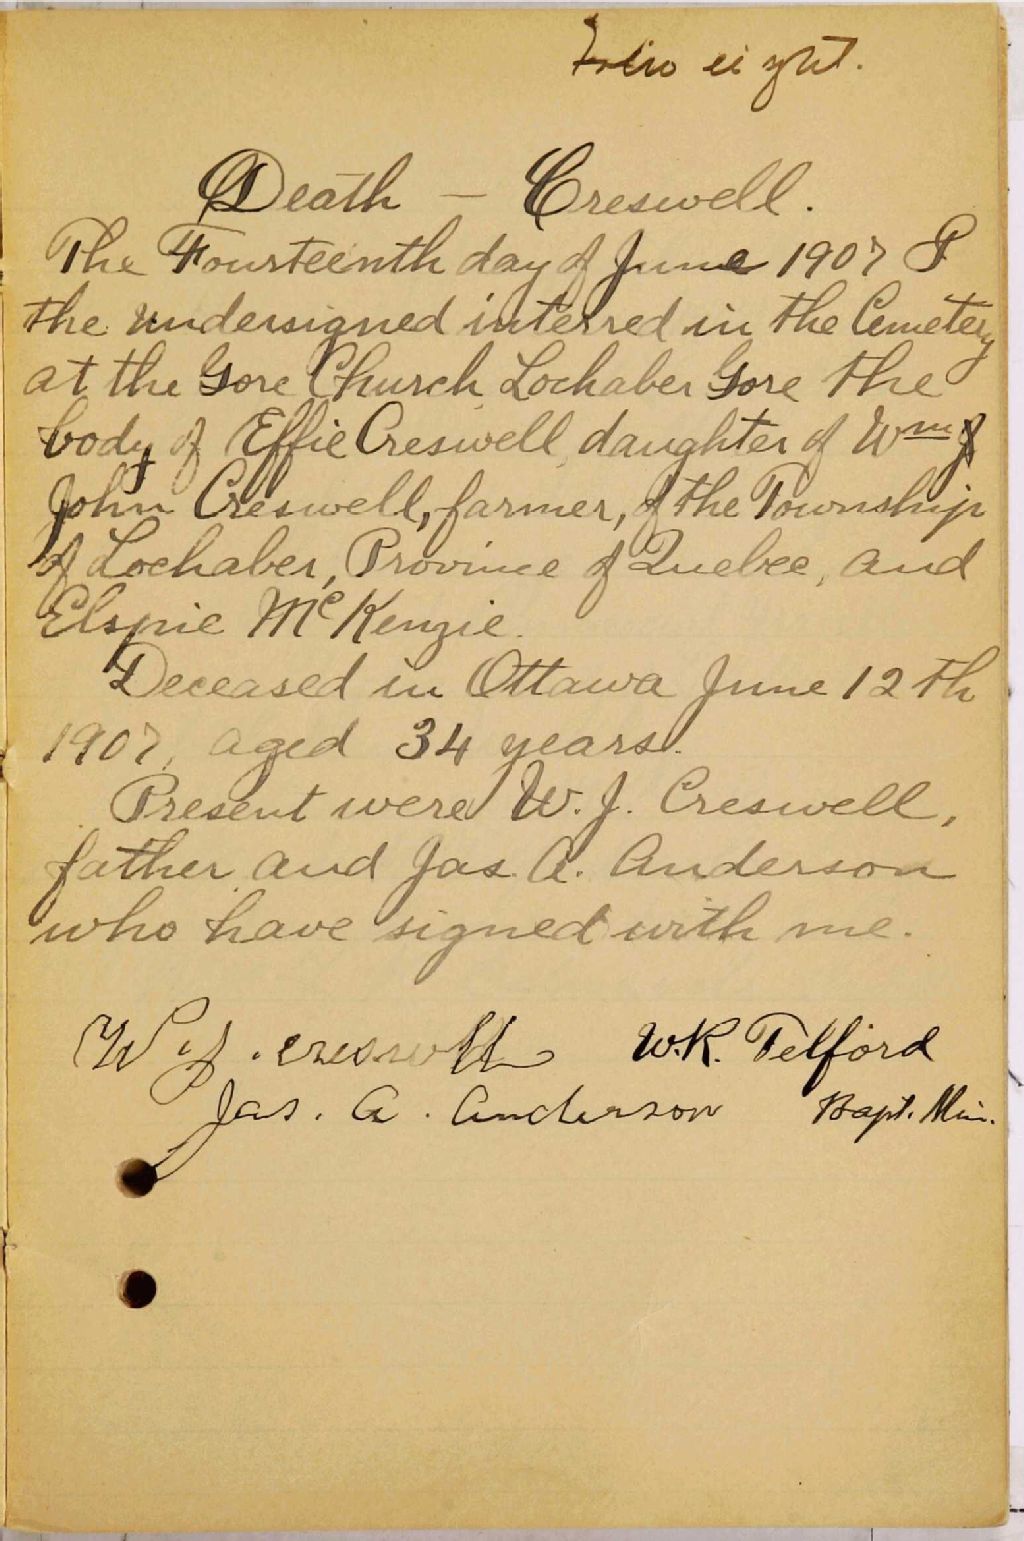 Folio eight.
Death — Creswell.
The Fourteenth day of June 1907 I
the undersigned interred in the Cemetery
at the Gore Church Lochaber Gore the
body of Effie Creswell, daughter of Wm
John Creswell, farmer, of the Township
of Lochaber, Province of Quebec, and
Elspie McKenzie.
Deceased in Ottawa June 12th
1907, aged 34 years.
Present were W. J. Creswell,
father and Jas. A. Anderson
who have signed with me.
W. J. Creswell W.R. Telford
Jas. A. Anderson Bapt. Min.